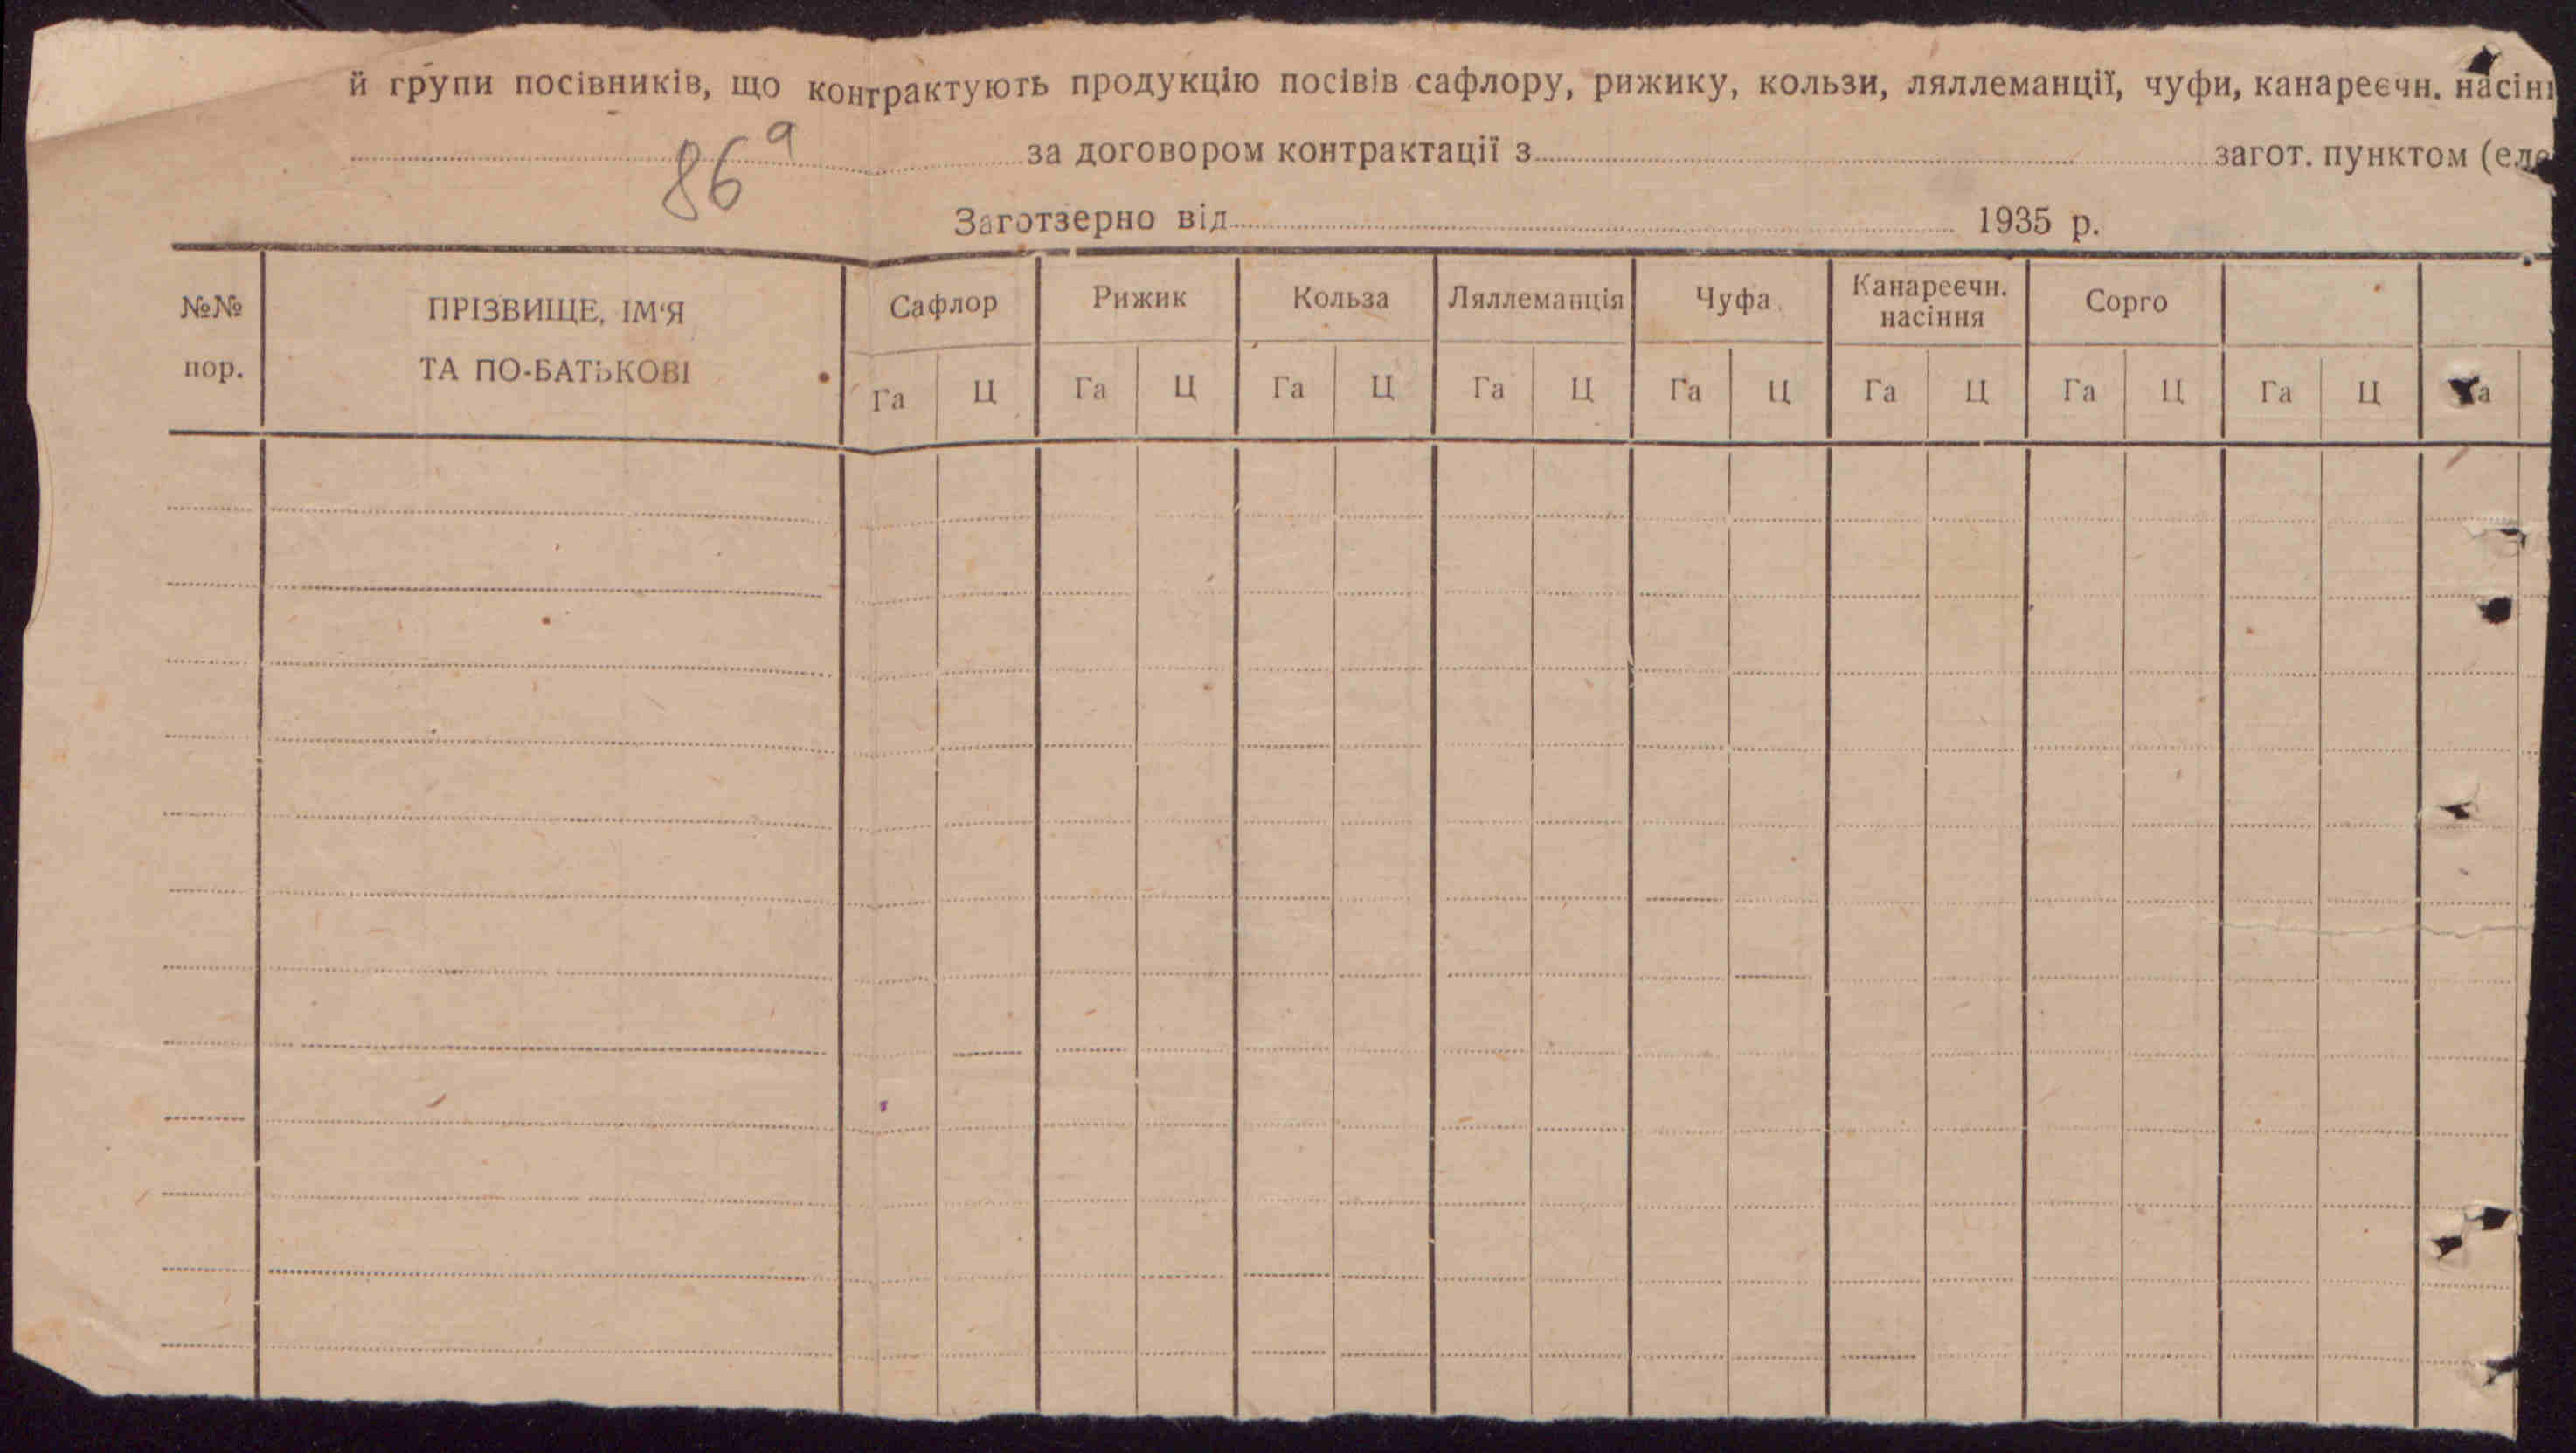 й групи посівників, що контрактують продукцію посівів сафлору, рижику, кользи, ляллеманції, чуфи, канареєчн. насін
86а
за договором контрактації з загот. пунктом (еле
Заготзерно від 1935 р.
№№ пор.
ПРІЗВИЩЕ, ІМ'Я ТА ПО-БАТЬКОВІ
Сафлор Рижик Кольза Ляллеманція Чуфа Канареєчн. насіння Сорго
Га Ц Га Ц Га Ц Га Ц Га Ц Га Ц Га Ц Га Ц Га